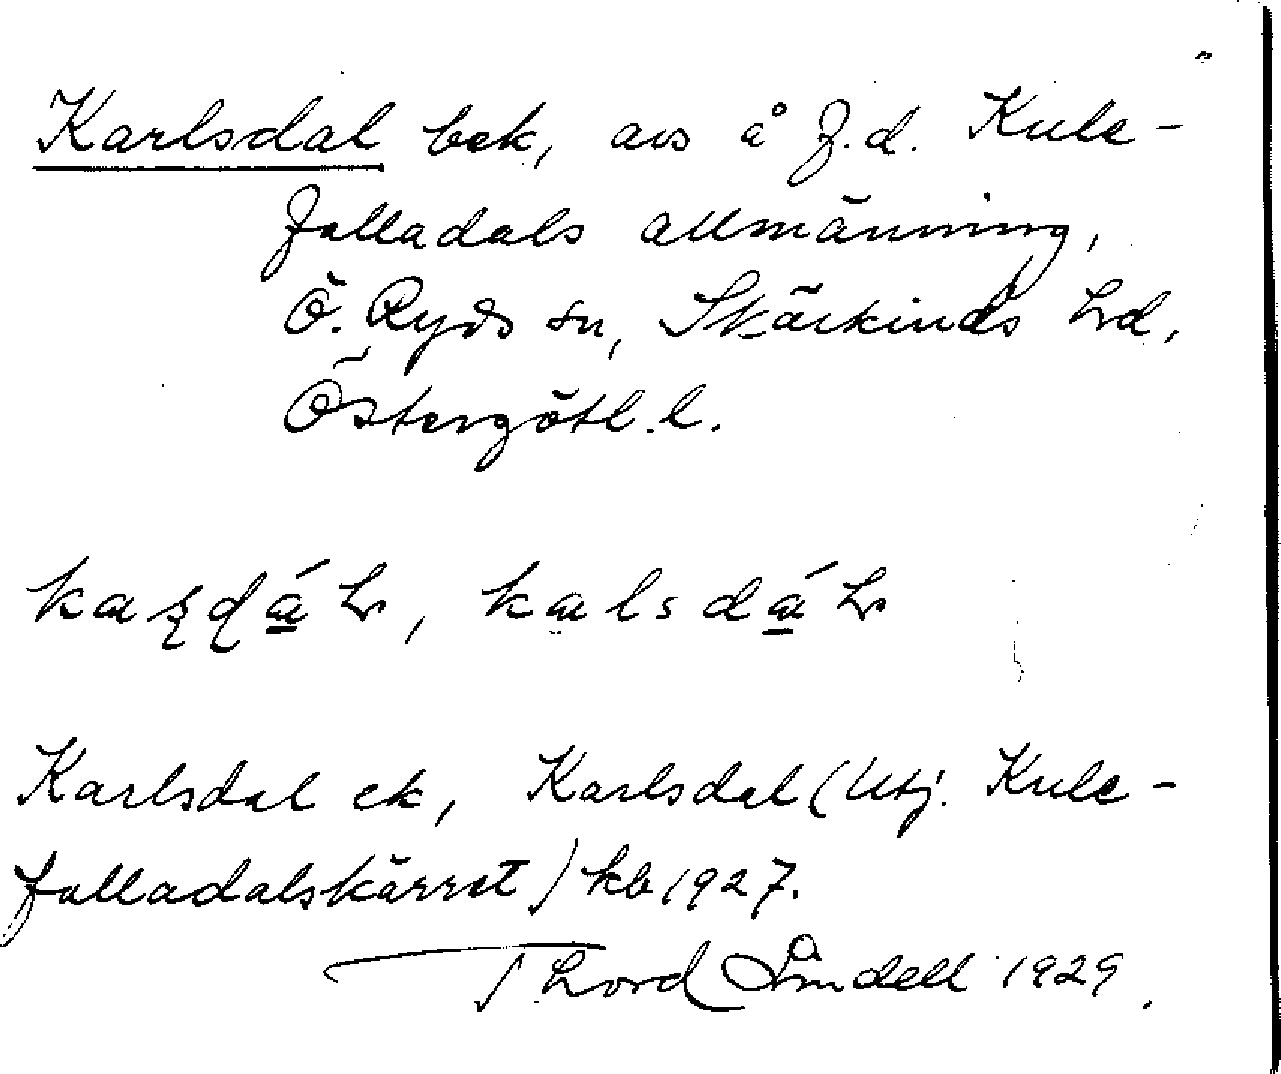 Karlsdal bek, avs å f.d. Kule-
falladals allmänning,
Ö. Ryds sn, Skärkinds hd,
Östergötl. l.
Karlsdal ek, Karlsdal (Utj. Kule-
falladalskärret) kb 1927.
Thord Lindell 1929.